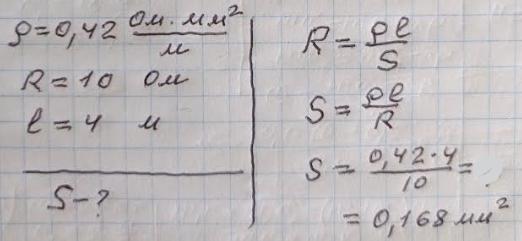 ρ=0,42 ом·мм²/м
R=10 ом
l=4 м
S-?
R=ρl/S
S=ρl/R
S=0,42·4/10=
=0,168мм²